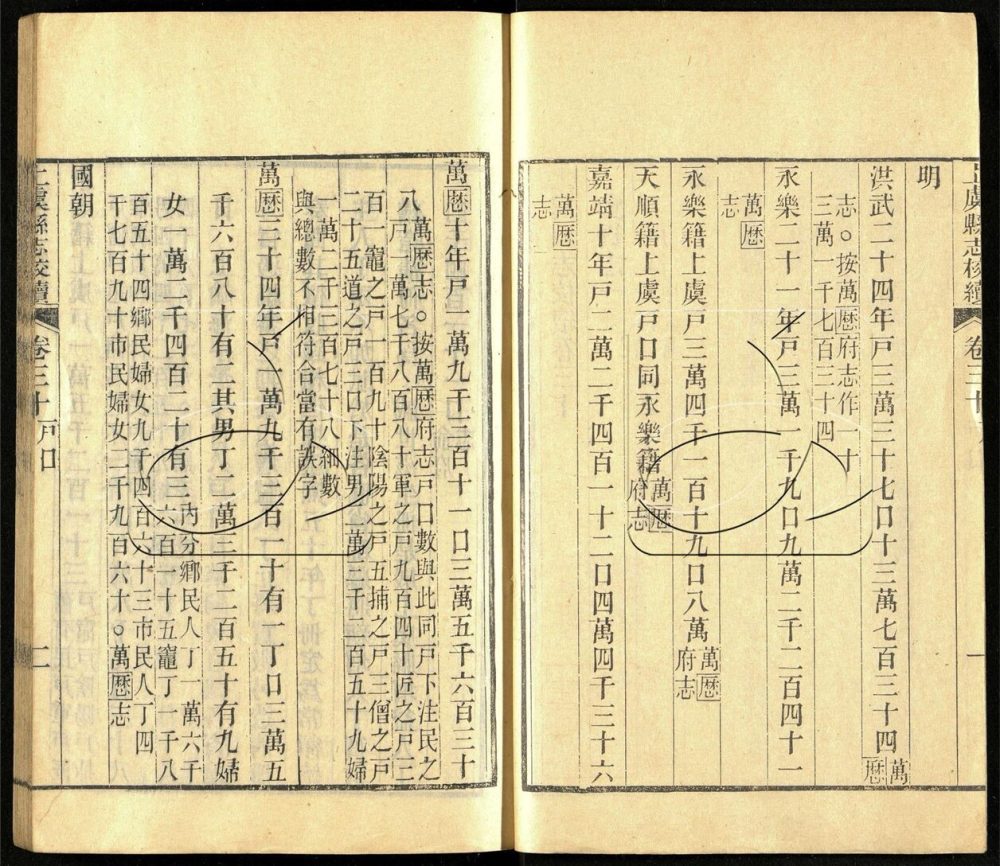 上虞縣志校續 卷三十 一
明
洪武二十四年戸三萬三十七口十三萬七百三十四萬曆
志○按萬曆府志作一十
三萬一千七百三十四
永樂二十一年戸三萬一千九口九萬二千二百四十一
萬曆
志
永樂籍上虞戸三萬四千一百十九口八萬萬曆府志
天順籍上虞戸口同永樂籍萬曆府志
嘉靖十年戸二萬二千四百一十二口四萬四千三十六
萬曆
志
萬曆十年戸一萬九千三百十一口三萬五千六百三十
八萬曆志○按萬曆府志戸口數與此同戸下注民之
戸一萬七千八百八十軍之戸九百四十匠之戸三
百一竈之戸一百九十陰陽之戸五捕之戸三僧之戸
二十五道之戸三口下注男二萬三千三百五十九婦
一萬二千三百七十八細數
與總數不相符合當有誤字
萬曆三十四年戸一萬九千三百一十有一丁口三萬五
千六百八十有二其男丁二萬三千二百五十有九婦
女一萬二千四百二十有三内分鄉民人丁一萬六千
六百一十五竈丁一千八
百五十四鄉民婦女九千四百六十三市民人丁四
千七百九十市民婦女二千九百六十○萬曆志
國朝
上虞縣志校續 卷三十 戸口 二